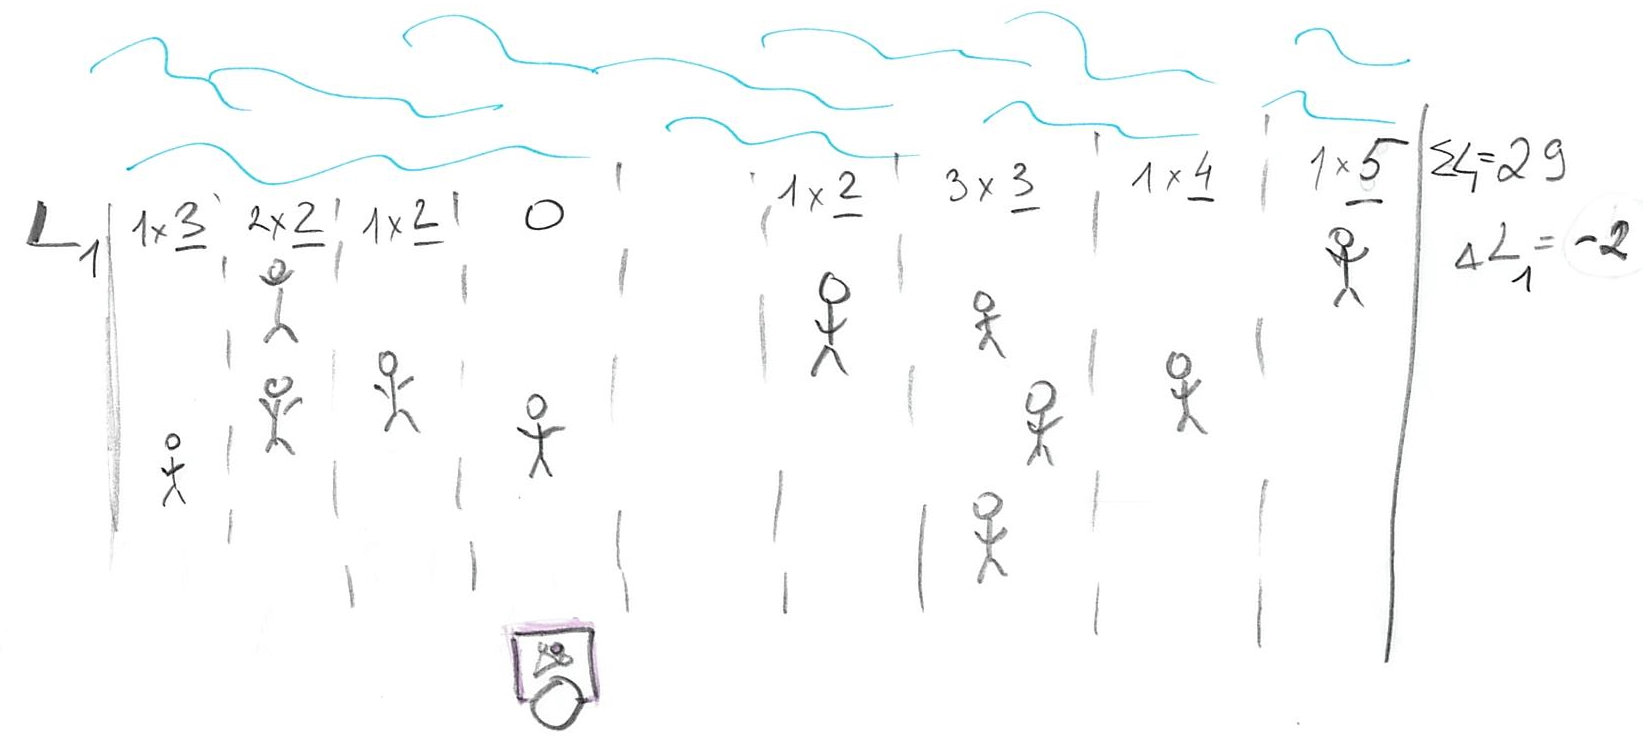 L₁ 1×3 2×2 1×2 0 1×2 3×3 1×4 1×5 ΣL₁=29
ΔL₁ = -2